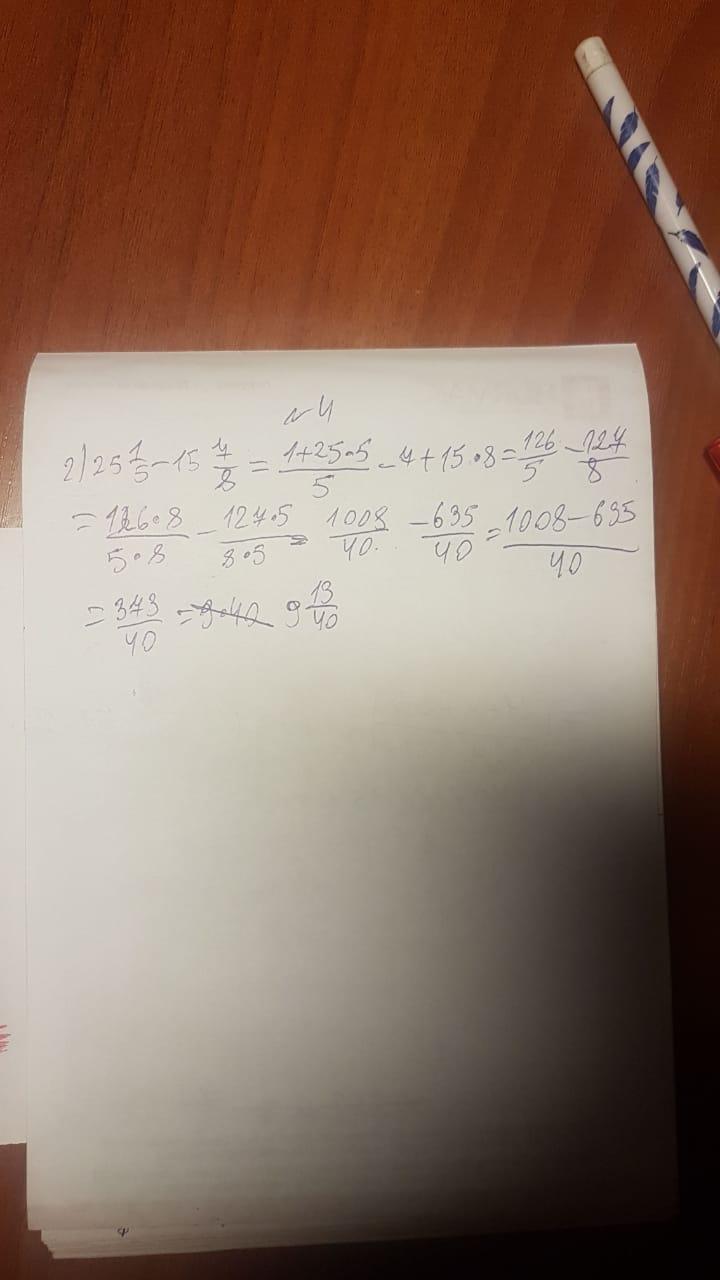 №4
2) 25 1/5 - 15 7/8 = (1+25·5)/5 - 7+15·8 = 126/5 - 127/8
= (126·8)/(5·8) - (127·5)/(8·5) = 1008/40 - 635/40 = (1008-635)/40
= 373/40 = 9·40 9 13/40